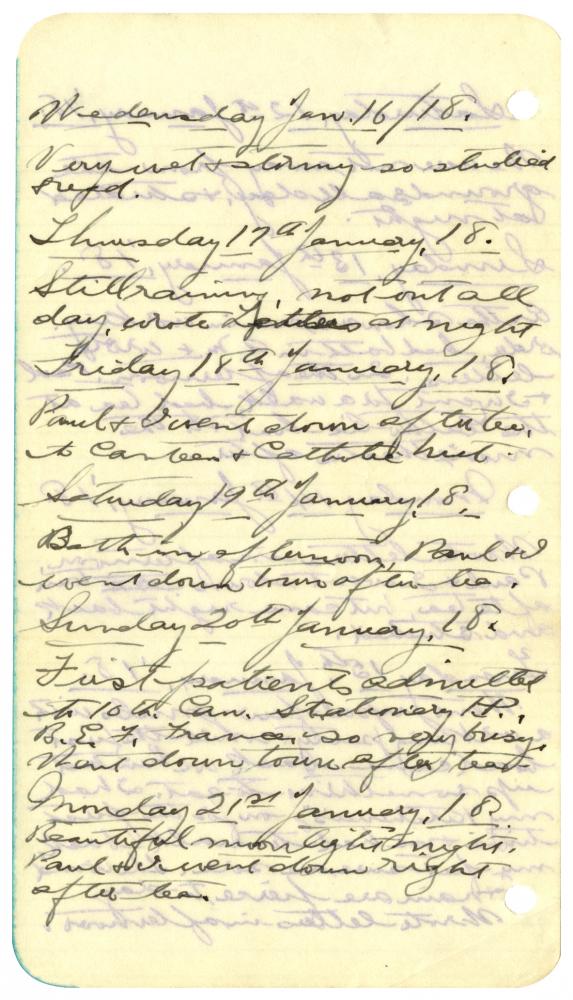 Wednesday Jan. 16/18.
Very wet & stormy so studied
& read.
Thursday 17th January, 18.
Still raining, not out all
day, wrote letters at night
Friday 18th January, 18.
Paul & I went down after tea,
to Canteen & Catholic hut.
Saturday 19th January, 18.
Bath in afternoon, Paul & I
went down town after tea.
Sunday 20th January, 18.
First patients admitted
to 10th. Can. Stationery H.,
B. E. F. France. so very busy.
Went down town after tea.
Monday 21st January, 18.
Beautiful moonlight night.
Paul & I went down right
after tea.